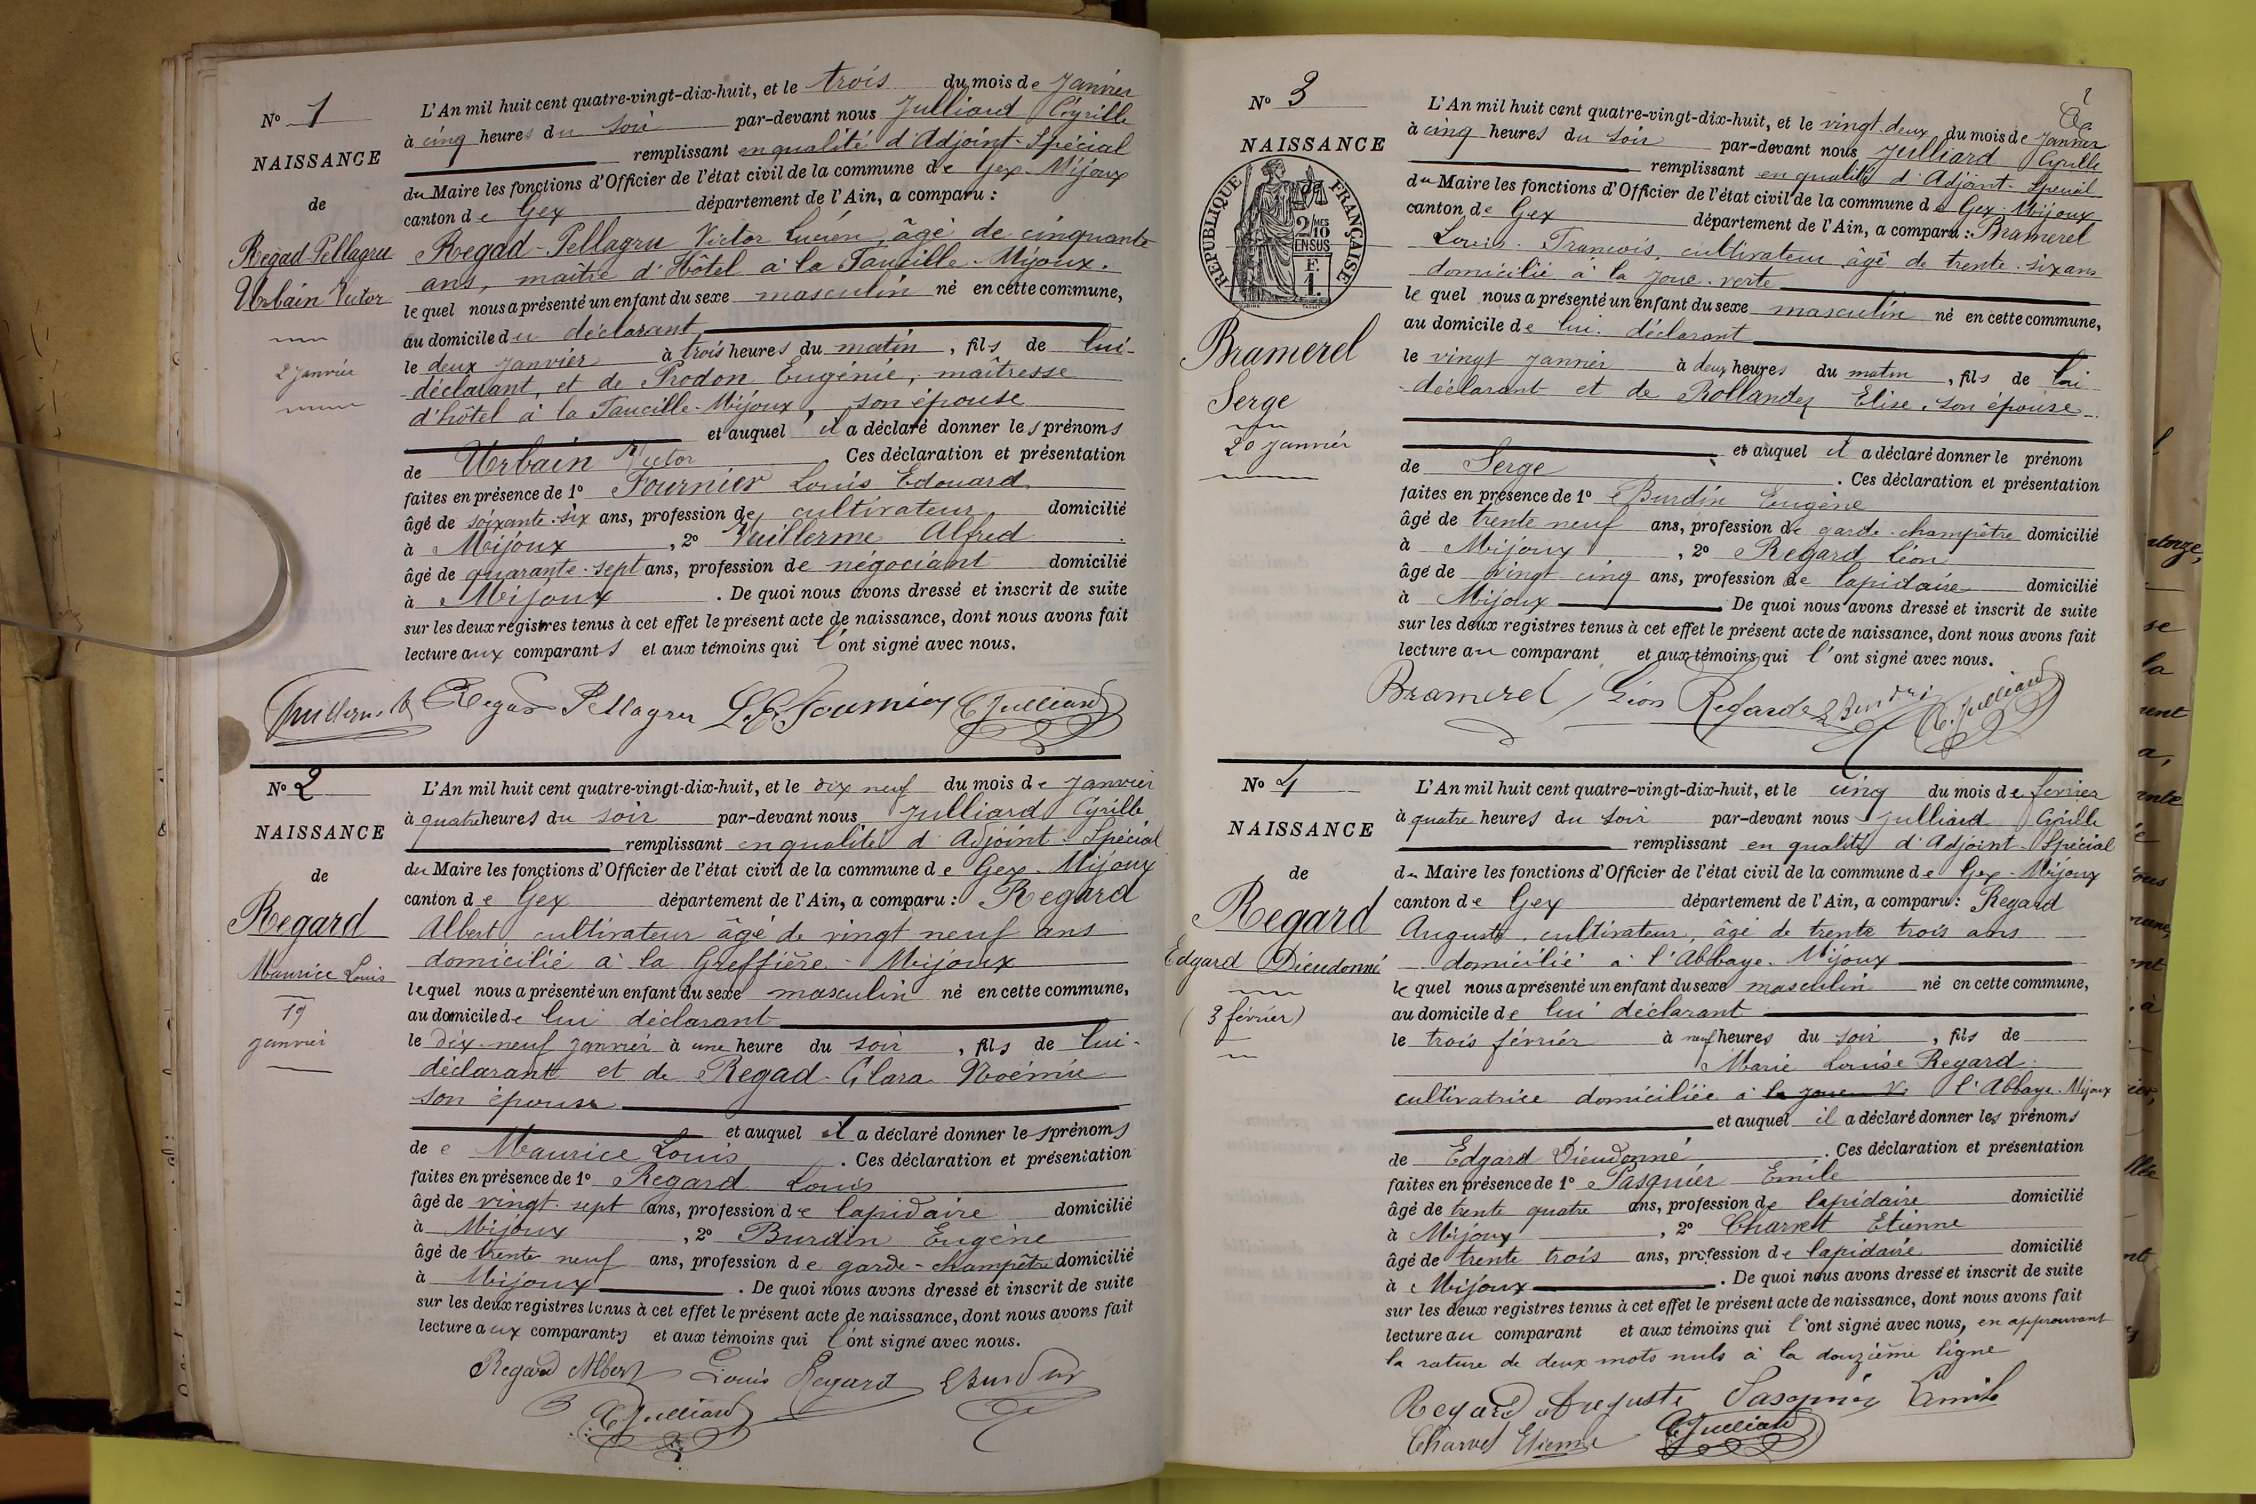 N° 1
NAISSANCE
de
Regad-Pellagru
Urbain Victor
2 janvier
L'An mil huit cent quatre-vingt-dix-huit, et le trois du mois de janvier
à cinq heures du soir par-devant nous Julliard Cyrille
remplissant en qualité d'Adjoint-Spécial
du Maire les fonctions d'Officier de l'état civil de la commune de Gex-Mijoux
canton de Gex département de l'Ain, a comparu :
Regad-Pellagru Victor Lucien, âgé de cinquante
ans, maître d'Hôtel à la Faucille-Mijoux.
lequel nous a présenté un enfant du sexe masculin né en cette commune,
au domicile du déclarant
le deux janvier à trois heures du matin, fils de lui-
déclarant, et de Prodon Eugénie, maîtresse
d'hôtel à la Faucille-Mijoux, son épouse
et auquel il a déclaré donner les prénoms
de Urbain Victor. Ces déclaration et présentation
faites en présence de 1° Fournier Louis Edouard
âgé de soixante-six ans, profession de cultivateur domicilié
à Mijoux, 2° Vuillerme Alfred
âgé de quarante-sept ans, profession de négociant domicilié
à Mijoux. De quoi nous avons dressé et inscrit de suite
sur les deux registres tenus à cet effet le présent acte de naissance, dont nous avons fait
lecture aux comparants et aux témoins qui l'ont signé avec nous.
Regad Pellagru L.E. Fournier C. Julliard
N° 2
NAISSANCE
de
Regard
Maurice Louis
19
janvier
L'An mil huit cent quatre-vingt-dix-huit, et le dix neuf du mois de janvier
à quatre heures du soir par-devant nous Julliard Cyrille
remplissant en qualité d'Adjoint-Spécial
du Maire les fonctions d'Officier de l'état civil de la commune de Gex-Mijoux
canton de Gex département de l'Ain, a comparu : Regard
Albert cultivateur âgé de vingt neuf ans
domicilié à la Greffière-Mijoux
lequel nous a présenté un enfant du sexe masculin né en cette commune,
au domicile de lui déclarant
le dix-neuf janvier à une heure du soir, fils de lui-
déclarant et de Regad-Clara-Noémie
son épouse
et auquel il a déclaré donner les prénoms
de Maurice Louis. Ces déclaration et présentation
faites en présence de 1° Regard Louis
âgé de vingt-sept ans, profession de lapidaire domicilié
à Mijoux, 2° Burdin Eugène
âgé de trente neuf ans, profession de garde-champêtre domicilié
à Mijoux. De quoi nous avons dressé et inscrit de suite
sur les deux registres tenus à cet effet le présent acte de naissance, dont nous avons fait
lecture aux comparants et aux témoins qui l'ont signé avec nous.
Regard Albert Louis Regard E Burdin
C Julliard
N° 3
NAISSANCE
de
RÉPUBLIQUE FRANÇAISE
2 MES
10
EN SUS
F.
1.
Bramerel
Serge
20 Janvier
L'An mil huit cent quatre-vingt-dix-huit, et le vingt-deux du mois de janvier
à cinq heures du soir par-devant nous Julliard Cyrille
remplissant en qualité d'Adjoint-Spécial
du Maire les fonctions d'Officier de l'état civil de la commune de Gex-Mijoux
canton de Gex département de l'Ain, a comparu : Bramerel
Louis-François, cultivateur âgé de trente-six ans
domicilié à la Joue-verte
lequel nous a présenté un enfant du sexe masculin né en cette commune,
au domicile de lui déclarant
le vingt janvier à deux heures du matin, fils de lui
déclarant et de Rollandez Elise, son épouse
et auquel il a déclaré donner le prénom
de Serge. Ces déclaration et présentation
faites en présence de 1° Burdin Eugène
âgé de trente neuf ans, profession de garde-champêtre domicilié
à Mijoux, 2° Regard Léon
âgé de vingt cinq ans, profession de lapidaire domicilié
à Mijoux De quoi nous avons dressé et inscrit de suite
sur les deux registres tenus à cet effet le présent acte de naissance, dont nous avons fait
lecture au comparant et aux témoins qui l'ont signé avec nous.
Bramerel Léon Regard E Burdin C. Julliard
N° 4
NAISSANCE
de
Regard
Edgard Dieudonné
(3 février)
L'An mil huit cent quatre-vingt-dix-huit, et le cinq du mois de février
à quatre heures du soir par-devant nous Julliard Cyrille
remplissant en qualité d'Adjoint-Spécial
du Maire les fonctions d'Officier de l'état civil de la commune de Gex-Mijoux
canton de Gex département de l'Ain, a comparu : Regard
Auguste, cultivateur, âgé de trente trois ans
domicilié à l'Abbaye-Mijoux
lequel nous a présenté un enfant du sexe masculin né en cette commune,
au domicile de lui déclarant
le trois février à neuf heures du soir, fils de
Marie Louise Regard
cultivatrice domiciliée à la Joue V. l'Abbaye-Mijoux
et auquel il a déclaré donner les prénoms
de Edgard Dieudonné. Ces déclaration et présentation
faites en présence de 1° Pasquier Emile
âgé de trente quatre ans, profession de lapidaire domicilié
à Mijoux, 2° Charvet Etienne
âgé de trente trois ans, profession de lapidaire domicilié
à Mijoux. De quoi nous avons dressé et inscrit de suite
sur les deux registres tenus à cet effet le présent acte de naissance, dont nous avons fait
lecture au comparant et aux témoins qui l'ont signé avec nous, en approuvant
la rature de deux mots nuls à la douzième ligne
Regard Auguste Pasquier Emile
Charvet Etienne C Julliard